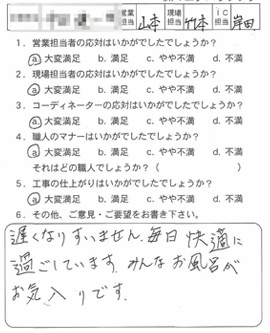 営業担当 山本 現場担当 竹本 IC担当 岸田
1. 営業担当者の応対はいかがでしたでしょうか？
ⓐ 大変満足 b. 満足 c. やや不満 d. 不満
2. 現場担当者の応対はいかがでしたでしょうか？
ⓐ 大変満足 b. 満足 c. やや不満 d. 不満
3. コーディネーターの応対はいかがでしたでしょうか？
ⓐ 大変満足 b. 満足 c. やや不満 d. 不満
4. 職人のマナーはいかがでしたでしょうか？
ⓐ 大変満足 b. 満足 c. やや不満 d. 不満
それはどの職人でしょうか？（ ）
5. 工事の仕上がりはいかがでしたでしょうか？
ⓐ 大変満足 b. 満足 c. やや不満 d. 不満
6. その他、ご意見・ご要望をお書き下さい。
遅くなりすいません。毎日 快適に
過ごしています。みんなお風呂が
お気に入りです。